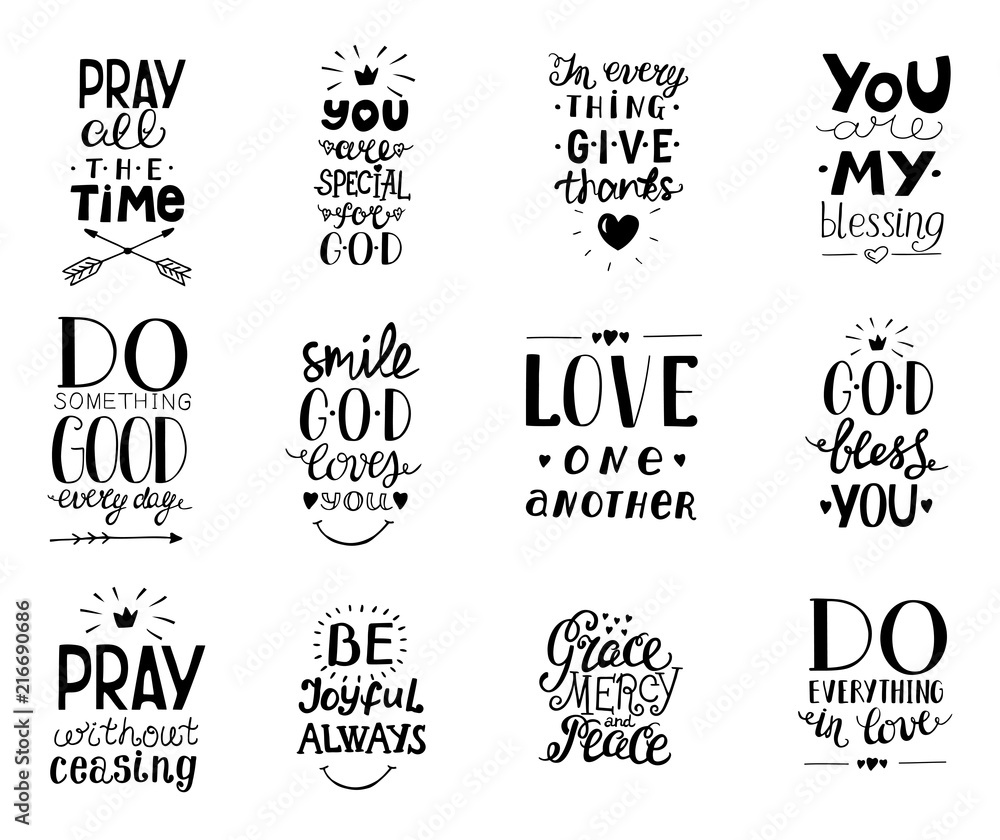 PRAY
all
·THE·
TIME
YOU
are
SPECIAL
for
GOD
In every
·THING·
G·I·V·E
thanks
YOU
are
·MY·
blessing
DO
SOMETHING
GOOD
every day
smile
G·O·D
loves
YOU
LOVE
ONE
ANOTHER
G·O·D
bless
YOU
PRAY
without
ceasing
BE
Joyful
ALWAYS
Grace
MERCY
and
Peace
DO
EVERYTHING
in love
Adobe Stock | #216690686